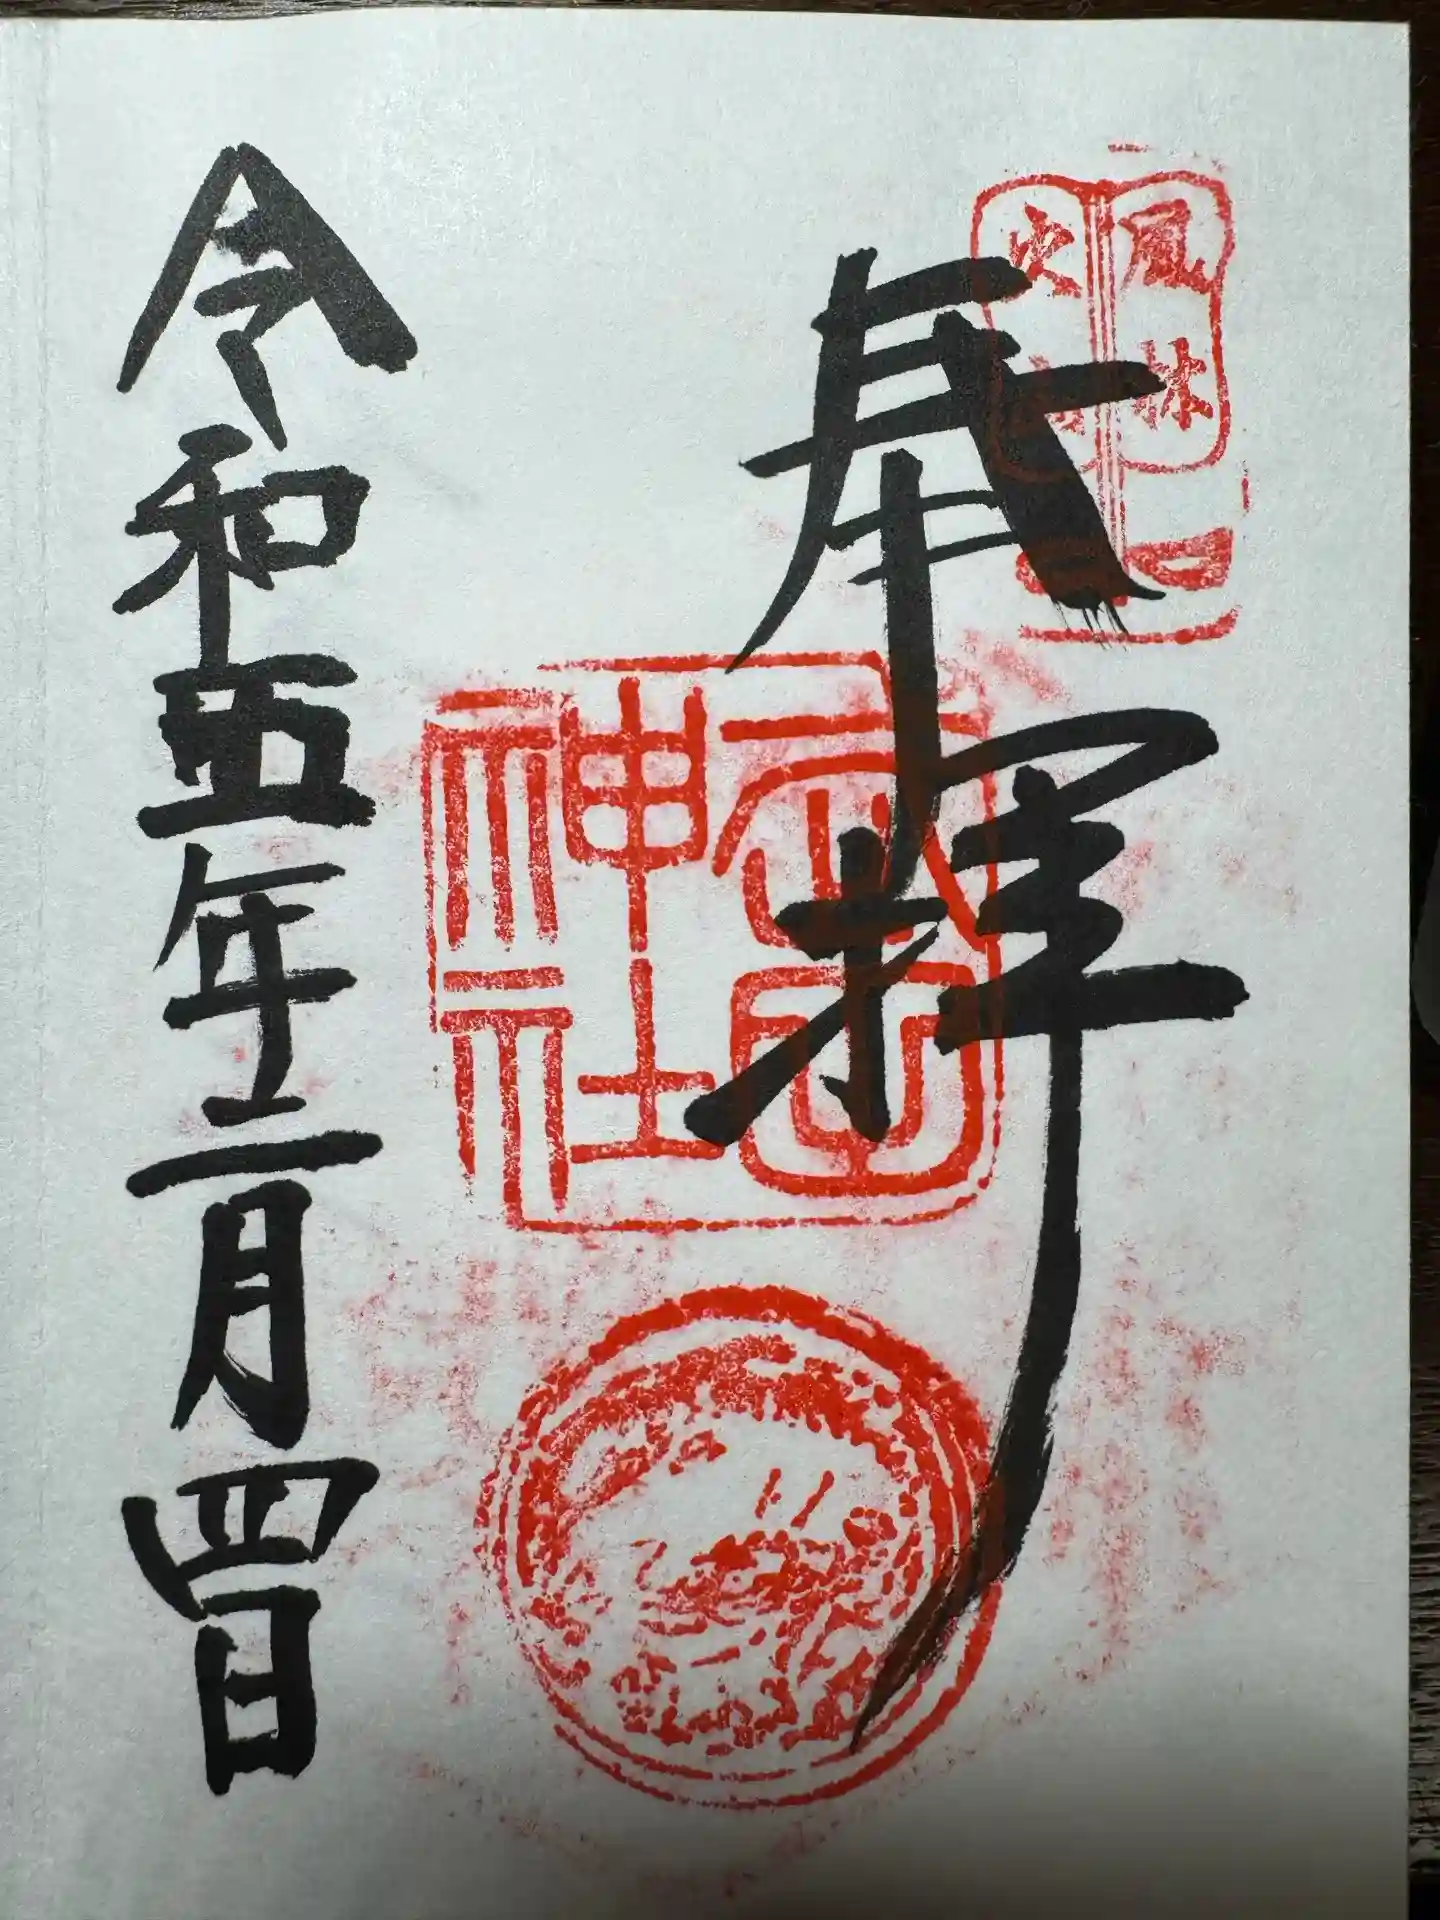 風林
火山
奉拝
神社
令和五年二月四日